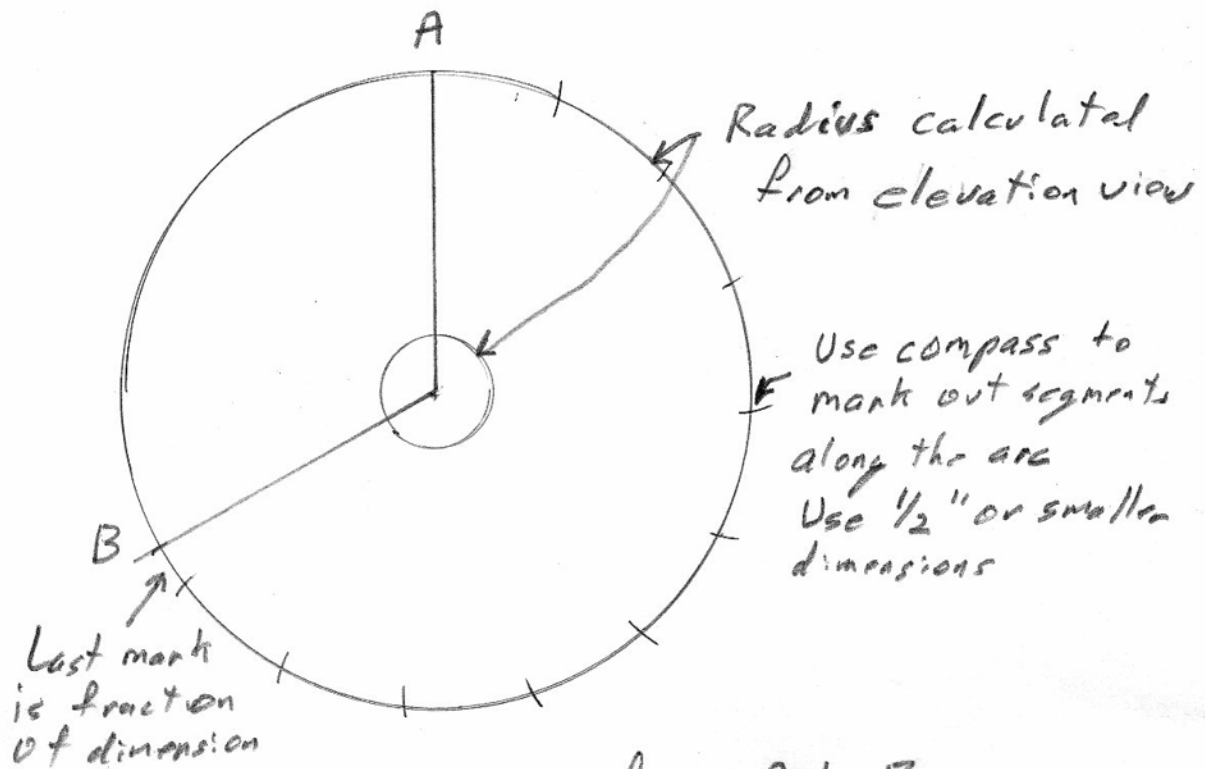 A
Radius calculated
from elevation view
Use compass to
mark out segments
along the arc
Use 1/2" or smaller
dimensions
B
Last mark
is fraction
of dimension